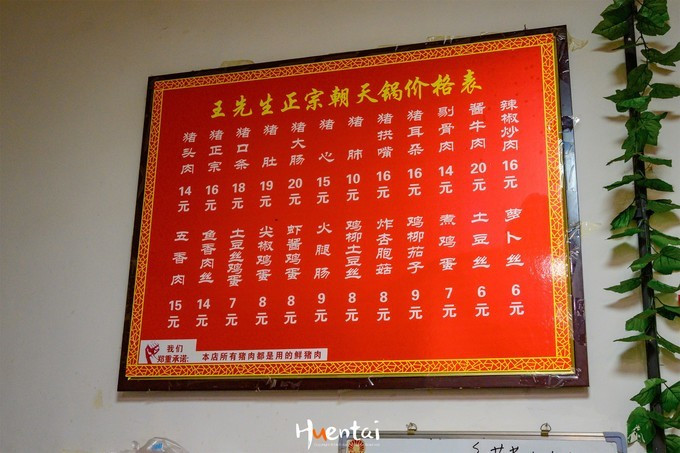 王先生正宗朝天锅价格表
猪头肉 14元
猪正宗 16元
猪口条 18元
猪肚 19元
猪大肠 20元
猪心 15元
猪肺 10元
猪拱嘴 16元
猪耳朵 16元
剔骨肉 14元
酱牛肉 20元
辣椒炒肉 16元
五香肉 15元
鱼香肉丝 14元
土豆丝鸡蛋 7元
尖椒鸡蛋 8元
虾酱鸡蛋 8元
火腿肠 9元
鸡柳土豆丝 8元
炸杏胞菇 8元
鸡柳茄子 9元
煮鸡蛋 7元
土豆丝 6元
萝卜丝 6元
我们
郑重承诺:
本店所有猪肉都是用的鲜猪肉
Huentai